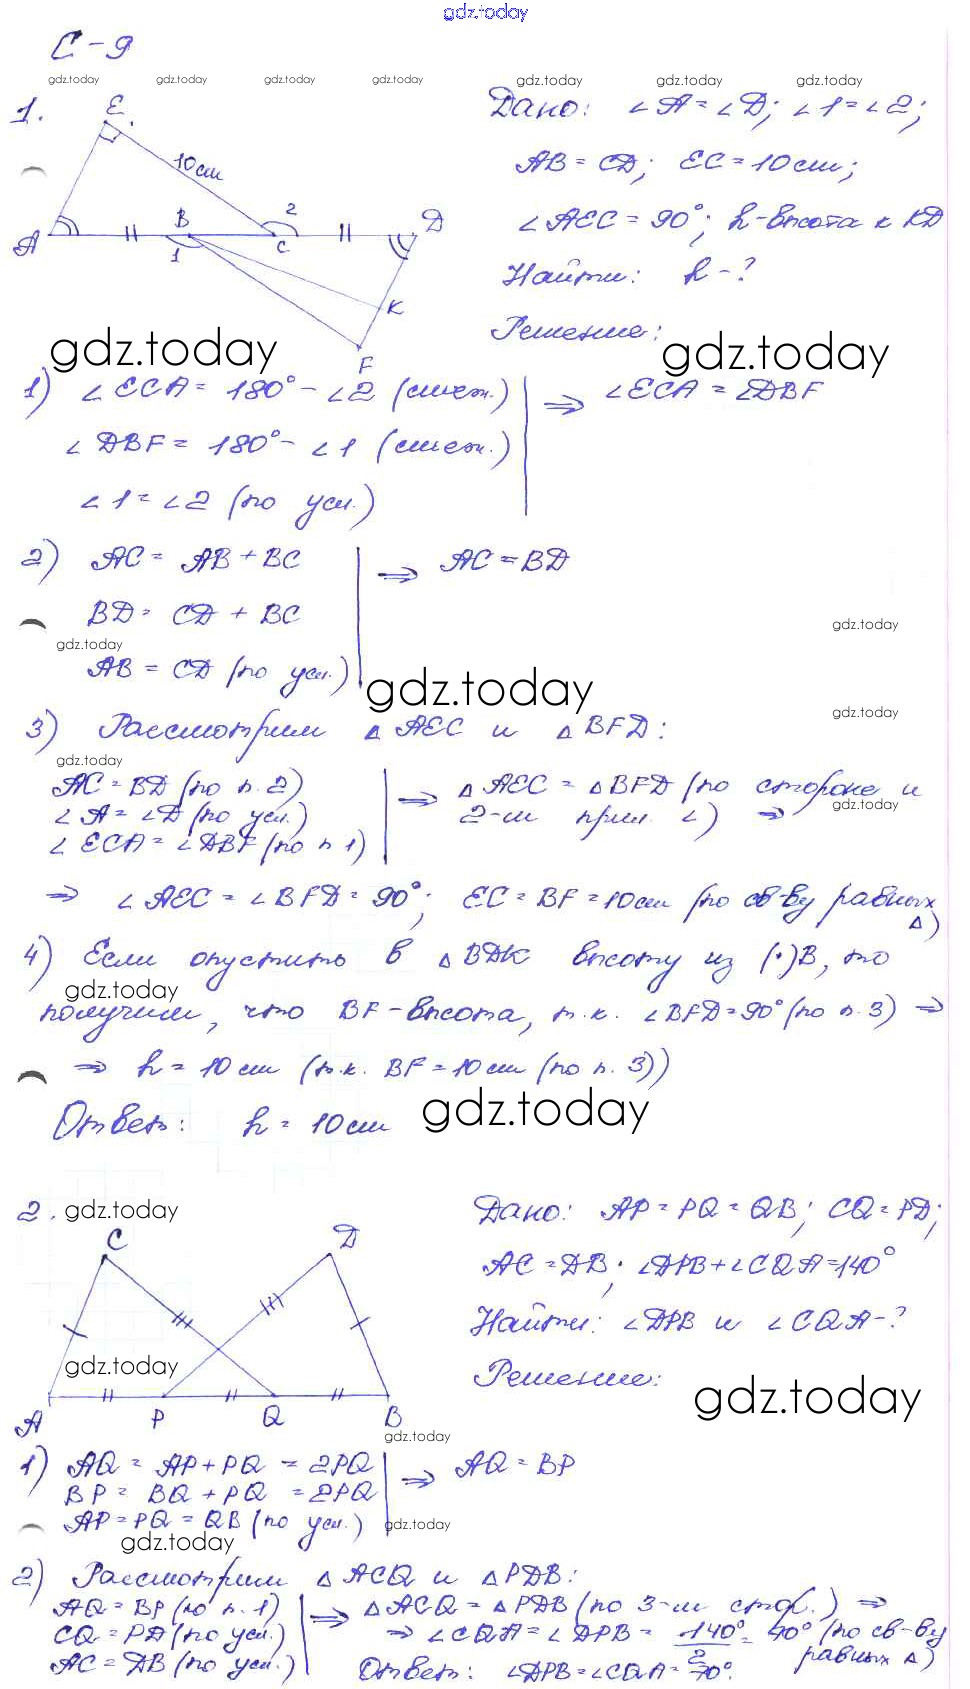 gdz.today
С-9
gdz.today gdz.today gdz.today gdz.today gdz.today gdz.today gdz.today
1.
E
10 см
A B 2 C D
1
K
F
Дано: ∠A = ∠D; ∠1 = ∠2;
AB = CD; EC = 10 см;
∠AEC = 90°; h-высота к KD
Найти: h-?
Решение:
gdz.today gdz.today
1) ∠ECA = 180° - ∠2 (смеж.) ⇒ ∠ECA = ∠DBF
∠DBF = 180° - ∠1 (смеж.)
∠1 = ∠2 (по усл.)
2) AC = AB + BC ⇒ AC = BD
BD = CD + BC
gdz.today gdz.today
AB = CD (по усл.)
gdz.today
gdz.today
3) Рассмотрим △AEC и △BFD:
gdz.today
AC = BD (по п. 2) ⇒ △AEC = △BFD (по стороне и
gdz.today
∠A = ∠D (по усл.) 2-м прил. ∠) ⇒
∠ECA = ∠DBF (по п 1)
⇒ ∠AEC = ∠BFD = 90°; EC = BF = 10 см (по св-ву равных △)
4) Если опустить в △BDK высоту из (·)B, то
gdz.today
получим, что BF-высота, т.к. ∠BFD = 90° (по п. 3) ⇒
⇒ h = 10 см (т.к. BF = 10 см (по п. 3))
Ответ: h = 10 см
gdz.today
2.
gdz.today
C D
gdz.today
A P Q B
Дано: AP = PQ = QB; CQ = PD;
AC = DB; ∠DPB + ∠CQA = 140°
Найти: ∠DPB и ∠CQA-?
Решение:
gdz.today
gdz.today
1) AQ = AP + PQ = 2PQ ⇒ AQ = BP
BP = BQ + PQ = 2PQ
AP = PQ = QB (по усл.)
gdz.today
gdz.today
2) Рассмотрим △ACQ и △PDB:
AQ = BP (по п. 1) ⇒ △ACQ = △PDB (по 3-м стор.) ⇒
CQ = PD (по усл.) ⇒ ∠CQA = ∠DPB = 140°/2 = 70° (по св-ву равных △)
AC = DB (по усл.) Ответ: ∠DPB = ∠CQA = 70°.